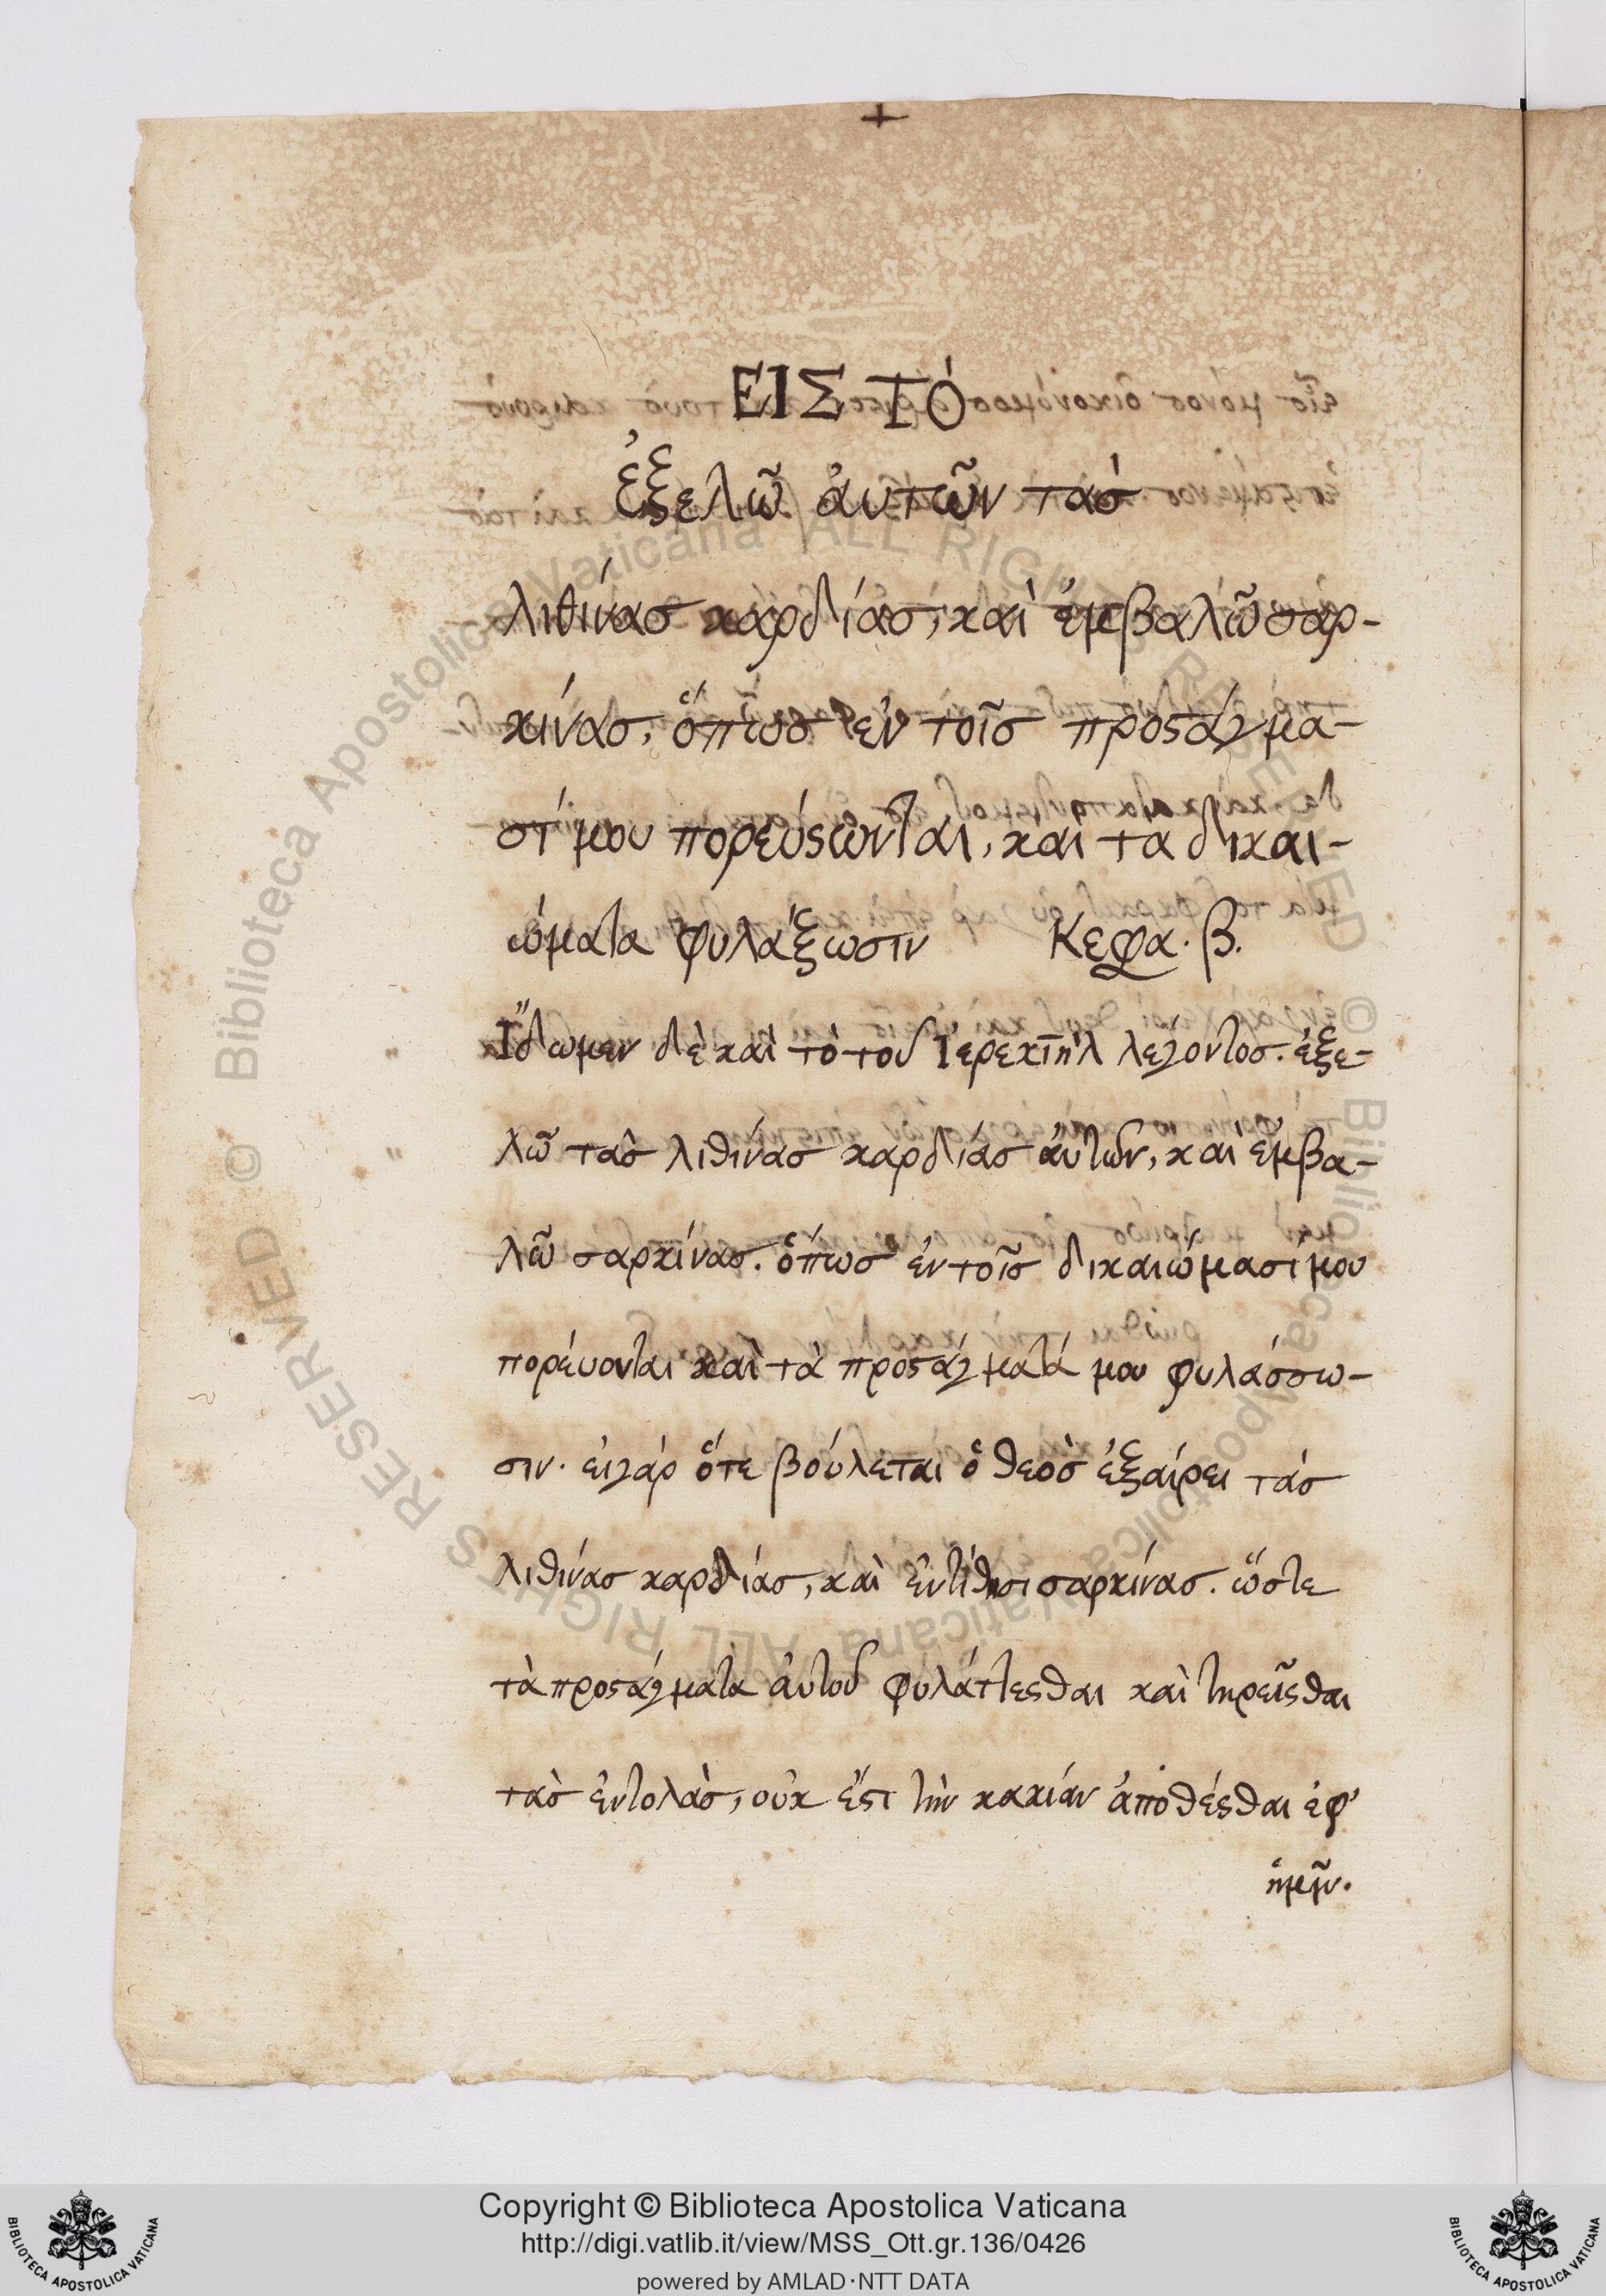 +
ΕΙΣ ΤΌ
ἐξελῶ ἀυτῶν τὰσ
λιθίνασ καρδίασ, καὶ ἐμβαλῶ σαρ-
κίνασ, ὅπωσ ἐν τοῖσ προςάγμα-
σί μου πορεύςωνται, καὶ τα δικαι-
ώματα φυλάξωσιν Κεφα. β.
Ἴδωμεν δὲ καὶ τὸ τοῦ λέγοντοσ. ἐξε-
λῶ τὰσ λιθίνασ καρδίασ ἀυτῶν, καὶ ἐμβα-
λῶ σαρκίνασ. ὅπωσ ἐν τοῖσ δικαιώμασί μου
πορέυονται καὶ τὰ προςάγματά μου φυλάσσω-
σιν. ειγὰρ ὅτε βούλεται ὁ θεὸσ ἐξαίρει τὰσ
λιθίνασ καρδίασ, καὶ ἐντίθησι σαρκίνασ. ὥστε
τὰ προςάγματα ἀυτοῦ φυλάττεςθαι καὶ τηρεῖςθαι
τὰσ ἐντολὰσ, οὐκ ἔςι τὴν κακίαν ἀποθέςθαι ἐφ'
ἡμῖν.
Copyright © Biblioteca Apostolica Vaticana
http://digi.vatlib.it/view/MSS_Ott.gr.136/0426
powered by AMLAD·NTT DATA
BIBLIOTECA APOSTOLICA VATICANA
BIBLIOTECA APOSTOLICA VATICANA
© Biblioteca Apostolica Vaticana ALL RIGHTS RESERVED
© Biblioteca Apostolica Vaticana ALL RIGHTS RESERVED